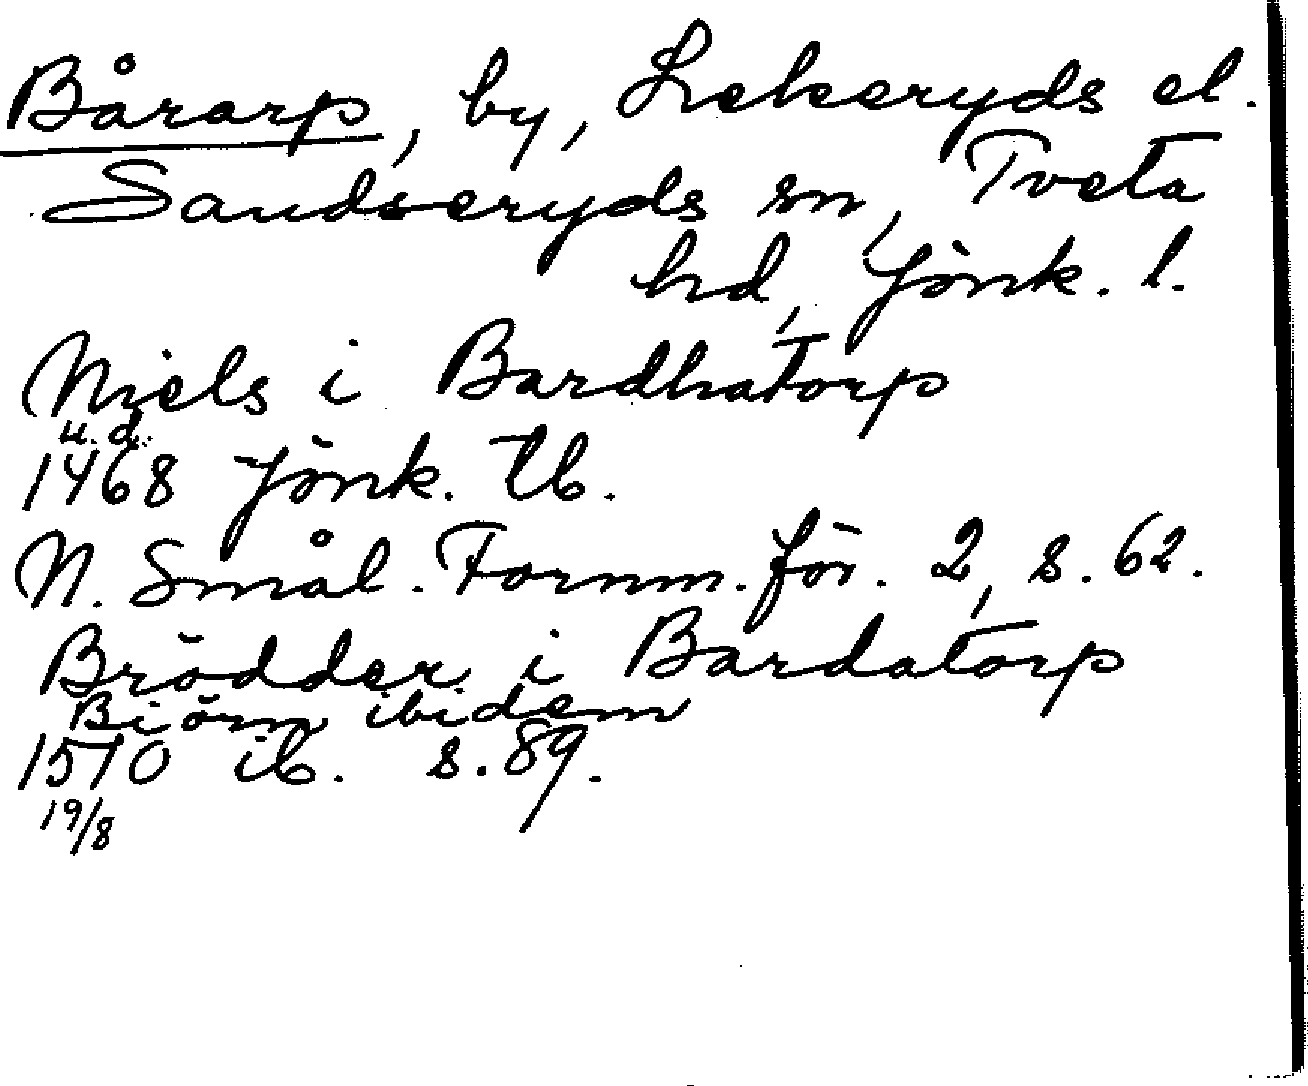 Bårarp, by, Lekeryds el.
Sandseryds sn, Tveta
hd, Jönk. l.
Niels i Bardhatorp
u. d.
1468 Jönk. Tb.
N. Smål. Fornm. för. 2, s. 62.
Brödder i Bardatorp
Biörn ibidem
1510 ib. s. 89.
19/8